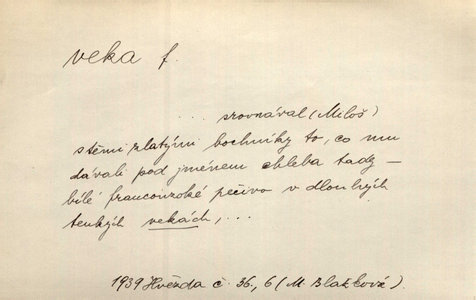 veka f.
... srovnával (Miloš)
s těmi zlatými bochníky to, co mu
dávali pod jménem chleba tady –
bílé francouzské pečivo v dlouhých
tenkých vekách, ...
1939 Hvězda č. 36, 6 (M. Blažková).